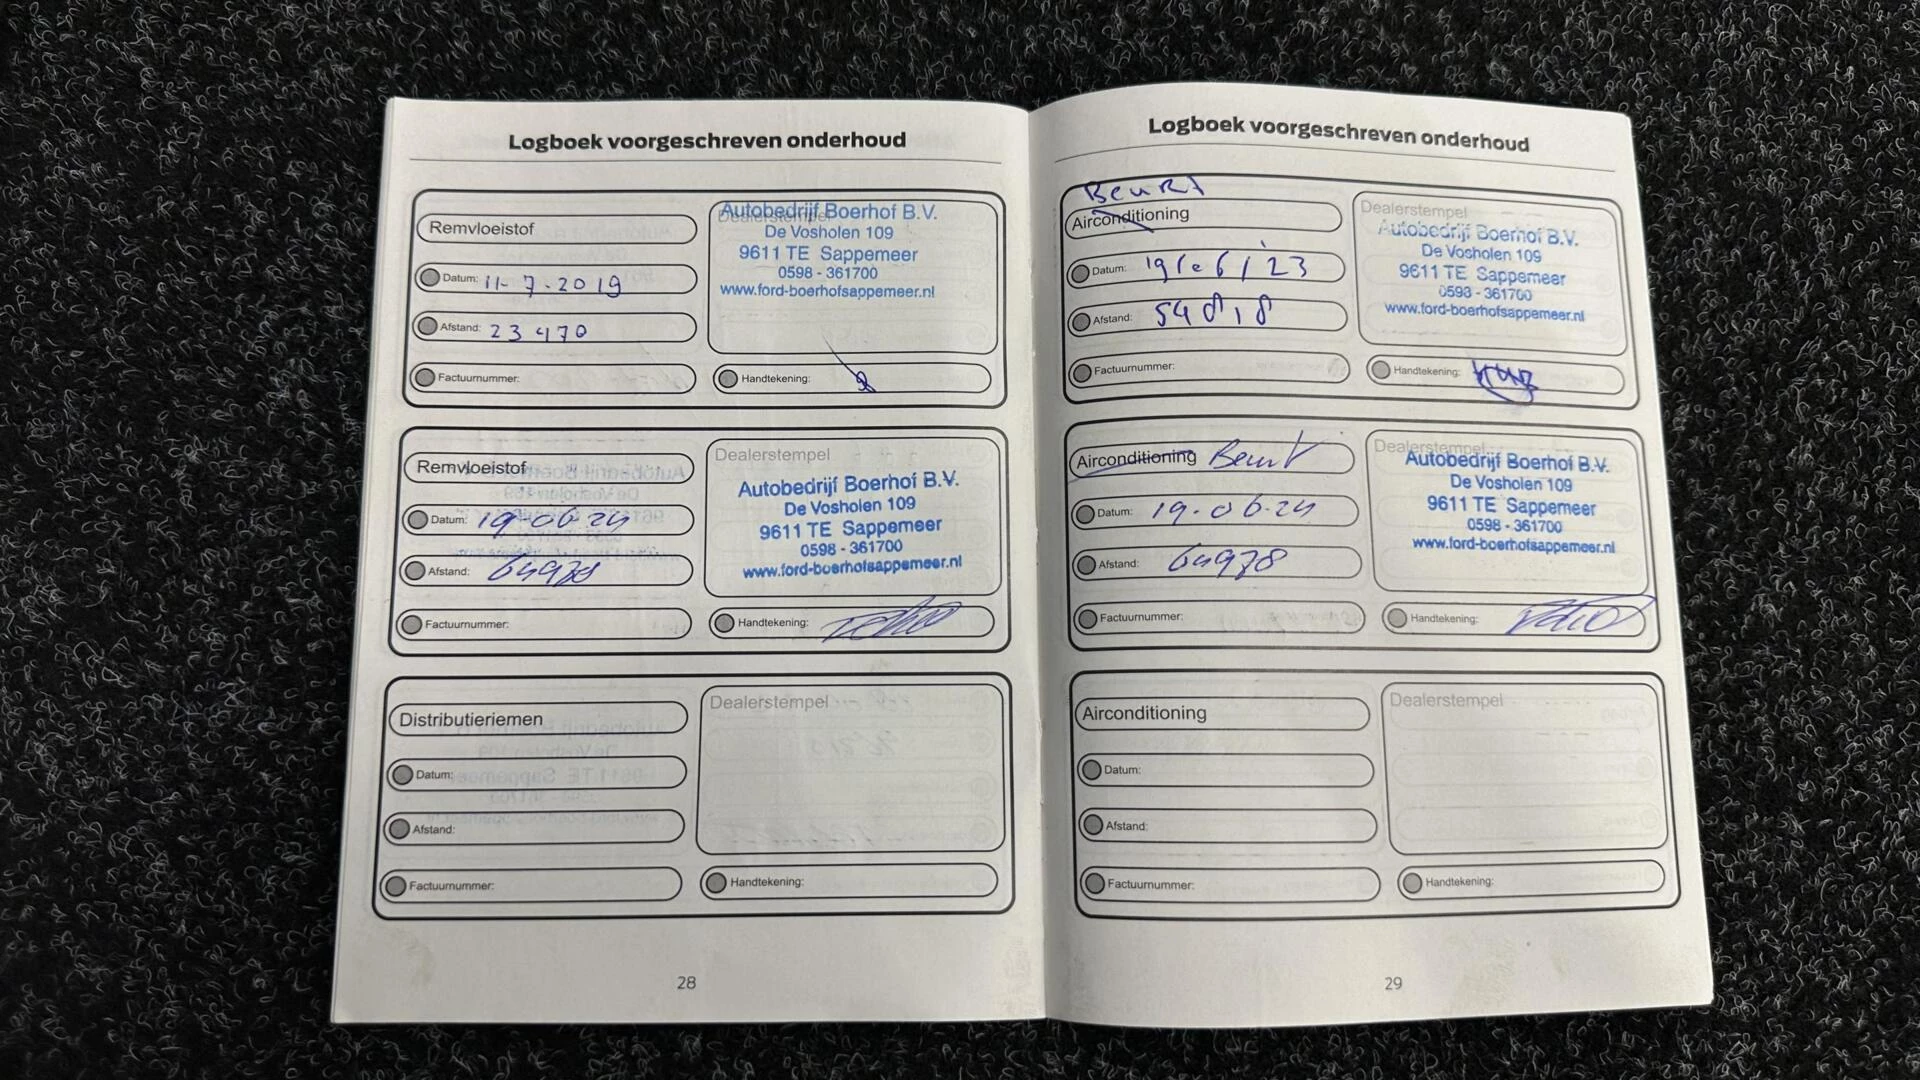 Logboek voorgeschreven onderhoud
Remvloeistof
Datum: 11-7-2019
Afstand: 23470
Factuurnummer:
Dealerstempel
Autobedrijf Boerhof B.V.
De Vosholen 109
9611 TE Sappemeer
0598 - 361700
www.ford-boerhofsappemeer.nl
Handtekening:
Remvloeistof
Datum: 19-06-24
Afstand: 64978
Factuurnummer:
Dealerstempel
Autobedrijf Boerhof B.V.
De Vosholen 109
9611 TE Sappemeer
0598 - 361700
www.ford-boerhofsappemeer.nl
Handtekening:
Distributieriemen
Datum:
Afstand:
Factuurnummer:
Dealerstempel
Handtekening:
28
Logboek voorgeschreven onderhoud
Beurt
Airconditioning
Datum:
Afstand: 54818
Factuurnummer:
Dealerstempel
Autobedrijf Boerhof B.V.
De Vosholen 109
9611 TE Sappemeer
0598 - 361700
www.ford-boerhofsappemeer.nl
Handtekening:
Airconditioning Beurt
Datum: 19-06-24
Afstand: 64978
Factuurnummer:
Dealerstempel
Autobedrijf Boerhof B.V.
De Vosholen 109
9611 TE Sappemeer
0598 - 361700
www.ford-boerhofsappemeer.nl
Handtekening:
Airconditioning
Datum:
Afstand:
Factuurnummer:
Dealerstempel
Handtekening:
29